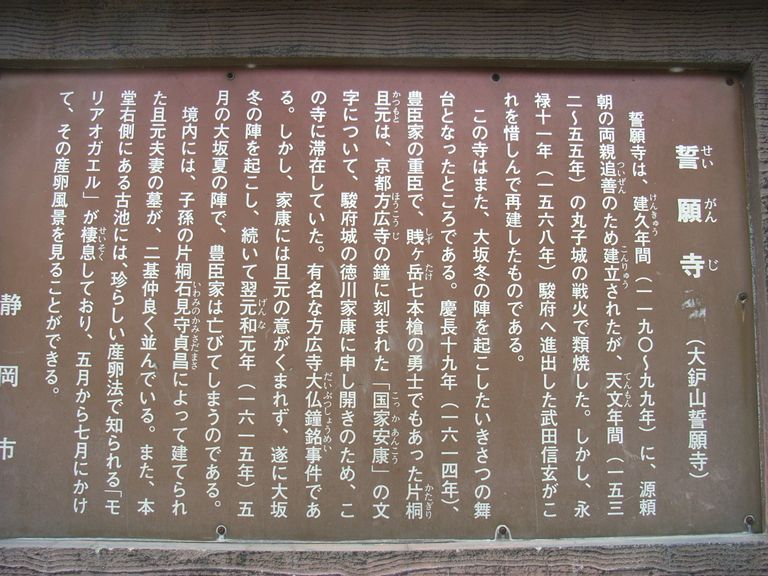 誓願寺（大鈩山誓願寺）
せいがんじ
誓願寺は、建久年間（一一九〇〜九九年）に、源頼
けんきゅう
朝の両親追善のため建立されたが、天文年間（一五三
ついぜん こんりゅう てんもん
二〜五五年）の丸子城の戦火で類焼した。しかし、永
禄十一年（一五六八年）駿府へ進出した武田信玄がこ
れを惜しんで再建したものである。
この寺はまた、大坂冬の陣を起こしたいきさつの舞
台となったところである。慶長十九年（一六一四年）、
豊臣家の重臣で、賤ヶ岳七本槍の勇士でもあった片桐
しず たけ かたぎり
且元は、京都方広寺の鐘に刻まれた「国家安康」の文
かつもと ほうこうじ こっかあんこう
字について、駿府城の徳川家康に申し開きのため、こ
の寺に滞在していた。有名な方広寺大仏鐘銘事件であ
だいぶつしょうめい
る。しかし、家康には且元の意がくまれず、遂に大坂
冬の陣を起こし、続いて翌元和元年（一六一五年）五
げんな
月の大坂夏の陣で、豊臣家は亡びてしまうのである。
境内には、子孫の片桐石見守貞昌によって建てられ
いわみのかみさだまさ
た且元夫妻の墓が、二基仲良く並んでいる。また、本
堂右側にある古池には、珍らしい産卵法で知られる「モ
リアオガエル」が棲息しており、五月から七月にかけ
せいそく
て、その産卵風景を見ることができる。
静岡市